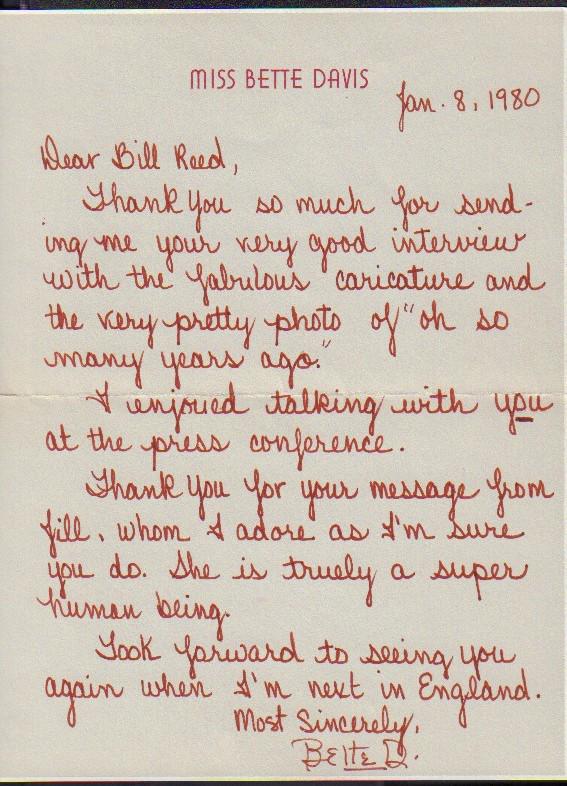 MISS BETTE DAVIS
Jan. 8, 1980
Dear Bill Reed,
Thank you so much for send-
ing me your very good interview
with the fabulous caricature and
the very pretty photo of "oh so
many years ago."
I enjoyed talking with you
at the press conference.
Thank you for your message from
Jill, whom I adore as I'm sure
you do. She is truely a super
human being.
Look forward to seeing you
again when I'm next in England.
Most Sincerely,
Bette D.